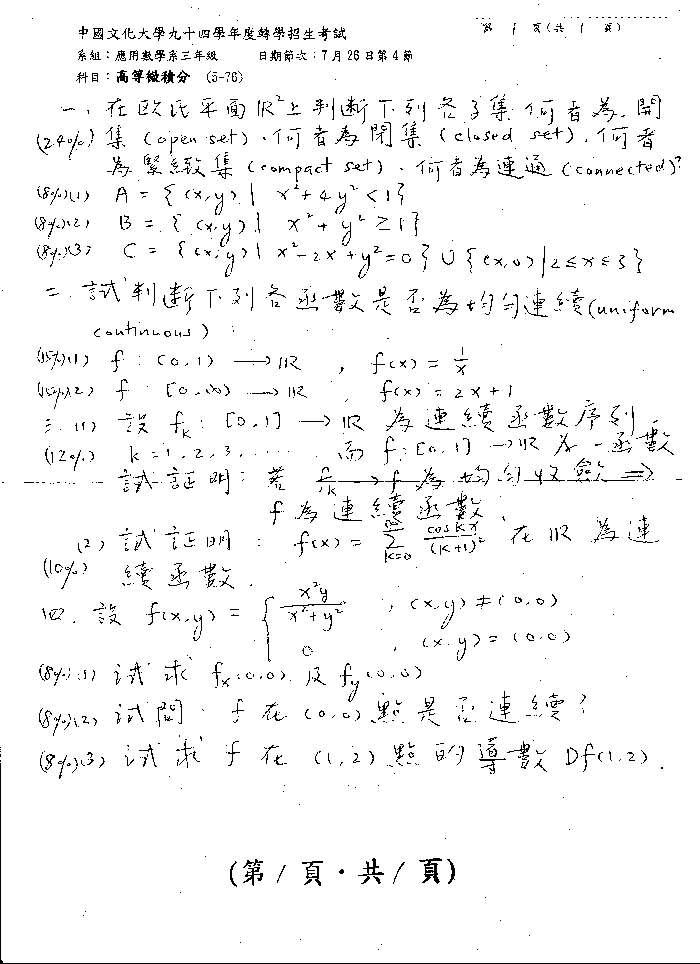 中國文化大學九十四學年度轉學招生考試
第 1 頁(共 1 頁)
系組：應用數學系三年級 日期節次：7月26日第4節
科目：高等微積分 (5-76)
一、在歐氏平面 ℝ² 上判斷下列各子集何者為開
(24%) 集 (open set)、何者為閉集 (closed set)、何者
為緊緻集 (compact set)、何者為連通 (connected)?
(8%)(1) A = { (x,y) | x²+4y²<1}
(8%)(2) B = { (x,y) | x²+y²≥1}
(8%)(3) C = { (x,y) | x²-2x+y²=0 } ∪ { (x,0) | 2≤x≤3 }
二、試判斷下列各函數是否為均勻連續 (uniform
continuous)：
(15%)(1) f : (0,1) → ℝ , f(x) = 1/x
(15%)(2) f : [0,∞) → ℝ , f(x) = 2x+1
三、(1) 設 f_k : [0,1] → ℝ 為連續函數序列,
(12%) k=1,2,3,...... 而 f:[0,1] → ℝ 為一函數
試証明：若 f_k → f 為均勻收歛 ⟹
f 為連續函數
(2) 試証明： f(x) = ∑_{k=0}^{∞} cos kx/(k+1)² 在 ℝ 為連
(10%) 續函數.
四、設 f(x,y) = { x²y/(x²+y²) , (x,y)≠(0,0)
0 , (x,y)=(0,0)
(8%)(1) 試求 f_x(0,0) 及 f_y(0,0)
(8%)(2) 試問 f 在 (0,0) 點是否連續？
(8%)(3) 試求 f 在 (1,2) 點的導數 Df(1,2).
(第 1 頁・共 1 頁)